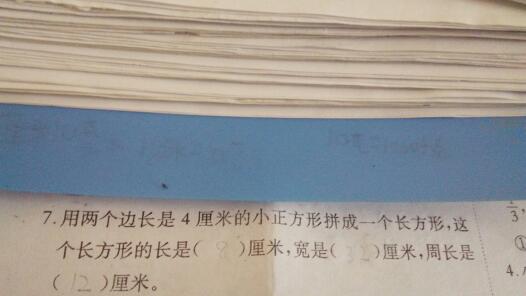 7.用两个边长是 4 厘米的小正方形拼成一个长方形,这
个长方形的长是( 8 )厘米,宽是( 32 )厘米,周长是
( 12 )厘米。
1/3,
①
4.